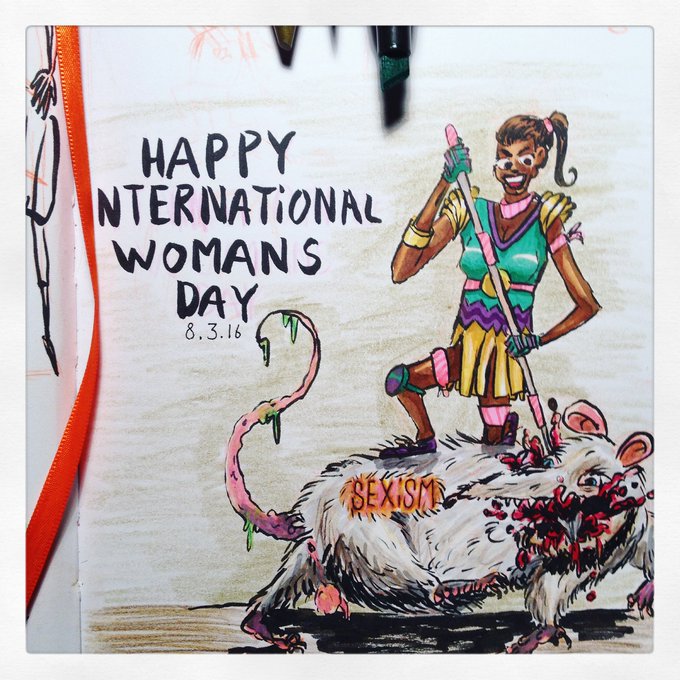 HAPPY
INTERNATIONAL
WOMANS
DAY
8.3.16
SEXISM